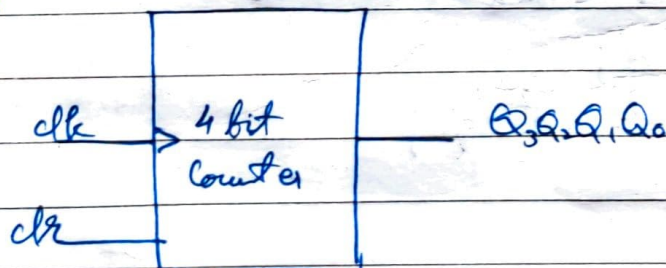 clk
4 bit
counter
Q₃Q₂Q₁Q₀
clr